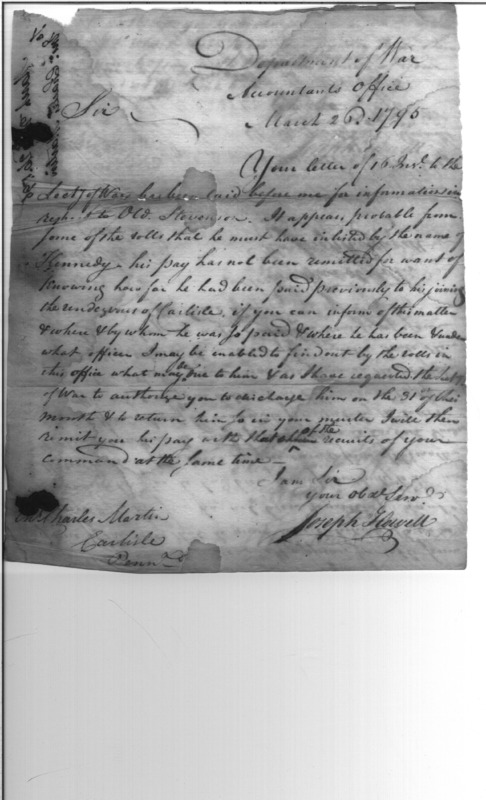 Department of War
Accountants Office
March 26d. 1795
Sir
Your letter of 16 Inst. to the
Secty of War has been laid before me for information in
respt. to Old. Stevenson. It appears probable from
some of the rolls that he must have inlisted by the name of
Kennedy - his pay has not been remitted for want of
knowing how far he had been paid previously to his joining
the rendezvous of Carlisle, if you can inform of this matter
& where & by whom he was so paid & where he has been & under
what officer I may be enabled to find out by the rolls in
this office what may be due to him & as I have requested the Secty
of War to authorize you to discharge him on the 31 of this
month & to return him so in your muster I will then
remit you his pay with that of the recruits of your
command at the same time -
I am Sir
your obdt. Servt.
Joseph Howell
Charles Martin
Carlisle
Penna.